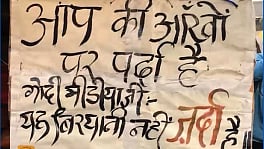 आप की आँखों
पर पर्दा है
गोदी मीडिया जी :-
यह बिरयानी नहीं ज़र्दा है